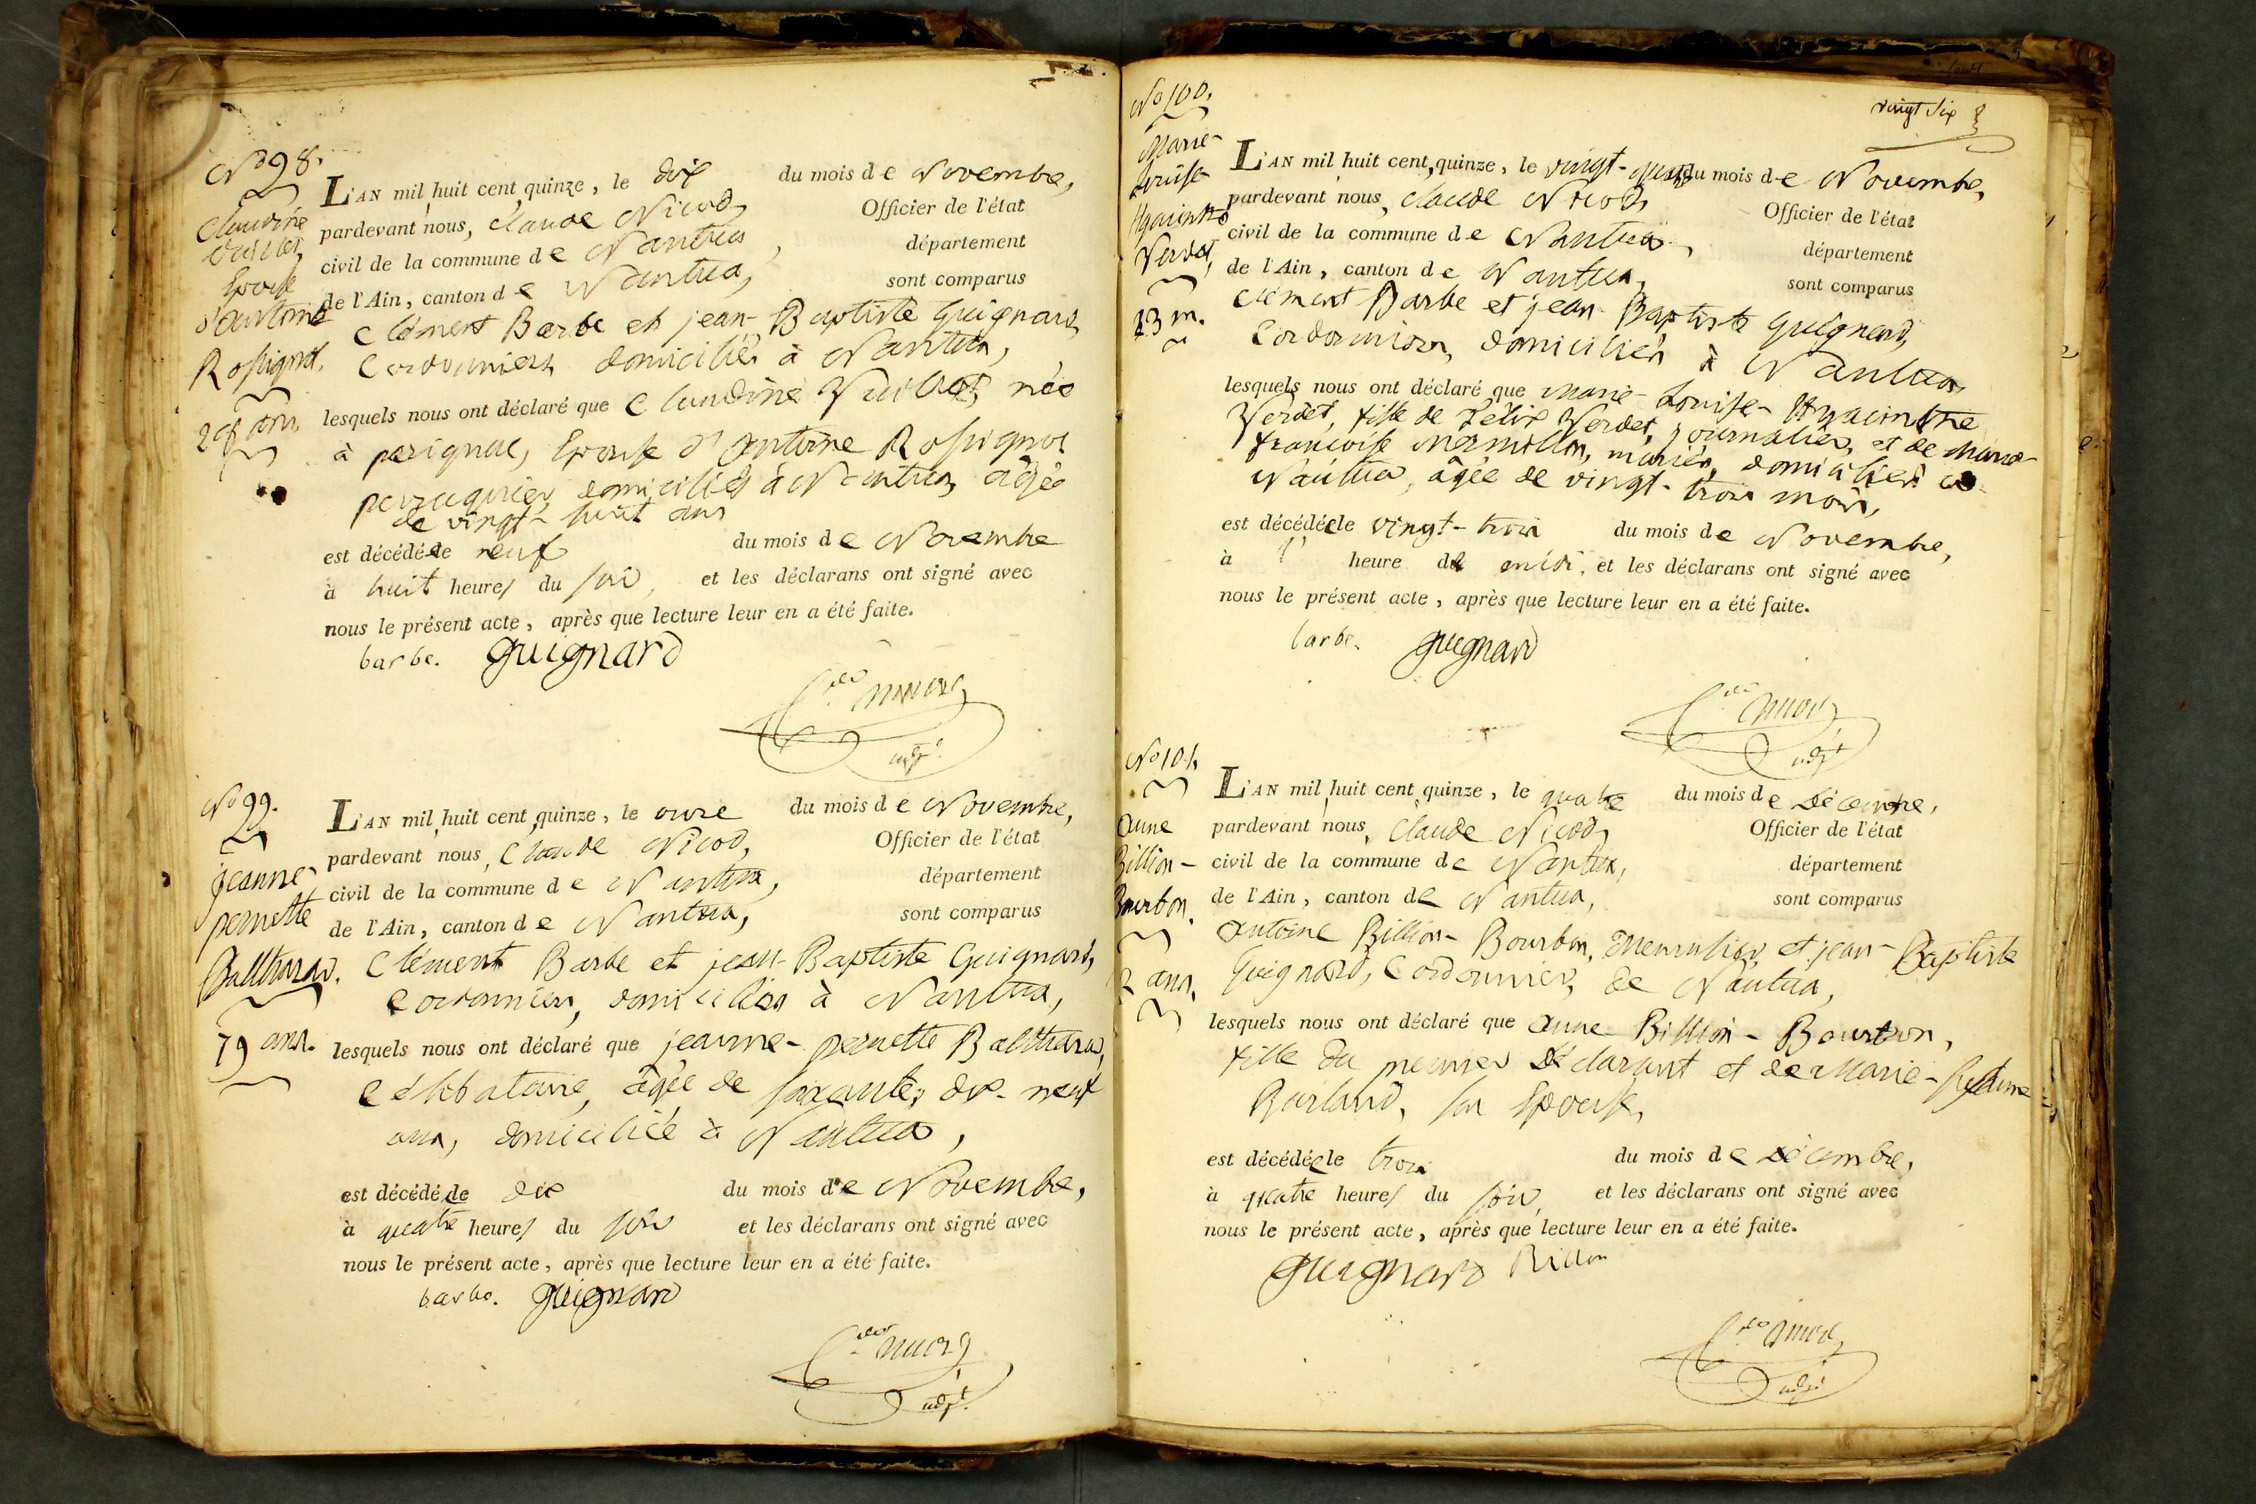 No 98.
Claudine
Vuillet,
Epouse
d'antoine
Rossignol.
28 ans.
L'AN mil huit cent quinze, le dix du mois de Novembre,
pardevant nous, claude Nicod, Officier de l'état
civil de la commune de Nantua, département
de l'Ain, canton de Nantua, sont comparus
Clément Barbe et jean-Baptiste Guignard,
Cordonniers domiciliés à Nantua,
lesquels nous ont déclaré que Claudine Vuillet, née
à perignal, Epouse d'antoine Rossignol
perruquier, domiciliés à Nantua, âgée
de vingt-huit ans
est décédée le neuf du mois de Novembre
à huit heures du soir, et les déclarans ont signé avec
nous le présent acte, après que lecture leur en a été faite.
barbe. guignard
Cde Nicod
adjt.
No 99.
jeanne-
pernette
Balthazard.
79 ans.
L'AN mil huit cent quinze, le onze du mois de Novembre,
pardevant nous, Claude Nicod, Officier de l'état
civil de la commune de Nantua, département
de l'Ain, canton de Nantua, sont comparus
Clément Barbe et jean-Baptiste Guignard,
Cordonniers, domiciliés à Nantua,
lesquels nous ont déclaré que jeanne-pernette Balthazard,
Célibataire, âgée de soixante, dix-neuf
ans, domiciliée à Nantua,
est décédée le dix du mois de Novembre,
à quatre heures du soir et les déclarans ont signé avec
nous le présent acte, après que lecture leur en a été faite.
barbe. guignard
Cde Nicod
adjt.
vingt six
No 100.
Marie-
Louise-
Hyacinthe
Verdet,
23 m.
L'AN mil huit cent quinze, le vingt-quatre du mois de Novembre,
pardevant nous, Claude Nicod, Officier de l'état
civil de la commune de Nantua, département
de l'Ain, canton de Nantua, sont comparus
Clément Barbe et jean-Baptiste Guignard,
Cordonniers, domiciliés à Nantua,
lesquels nous ont déclaré que Marie-Louise-Hyacinthe
Verdet, fille de Félix Verdet, journalier, et de Marie-
françoise Mermillon, mariés, domiciliés à
Nantua, âgée de vingt-trois mois,
est décédée le vingt-trois du mois de Novembre,
à heure de midi, et les déclarans ont signé avec
nous le présent acte, après que lecture leur en a été faite.
barbe. guignard
Cde Nicod
adjt
No 101.
anne
Billion-
Bourbon.
2 ans.
L'AN mil huit cent quinze, le quatre du mois de Décembre,
pardevant nous, Claude Nicod, Officier de l'état
civil de la commune de Nantua, département
de l'Ain, canton de Nantua, sont comparus
antoine Billion-Bourbon, Menuisier, et jean-Baptiste
Guignard, Cordonnier, de Nantua,
lesquels nous ont déclaré que anne Billion-Bourbon,
fille du premier Déclarant et de Marie-
Barland, son Epouse,
est décédée le trois du mois de Décembre,
à quatre heures du soir, et les déclarans ont signé avec
nous le présent acte, après que lecture leur en a été faite.
guignard Billion
Cde Nicod
adjt